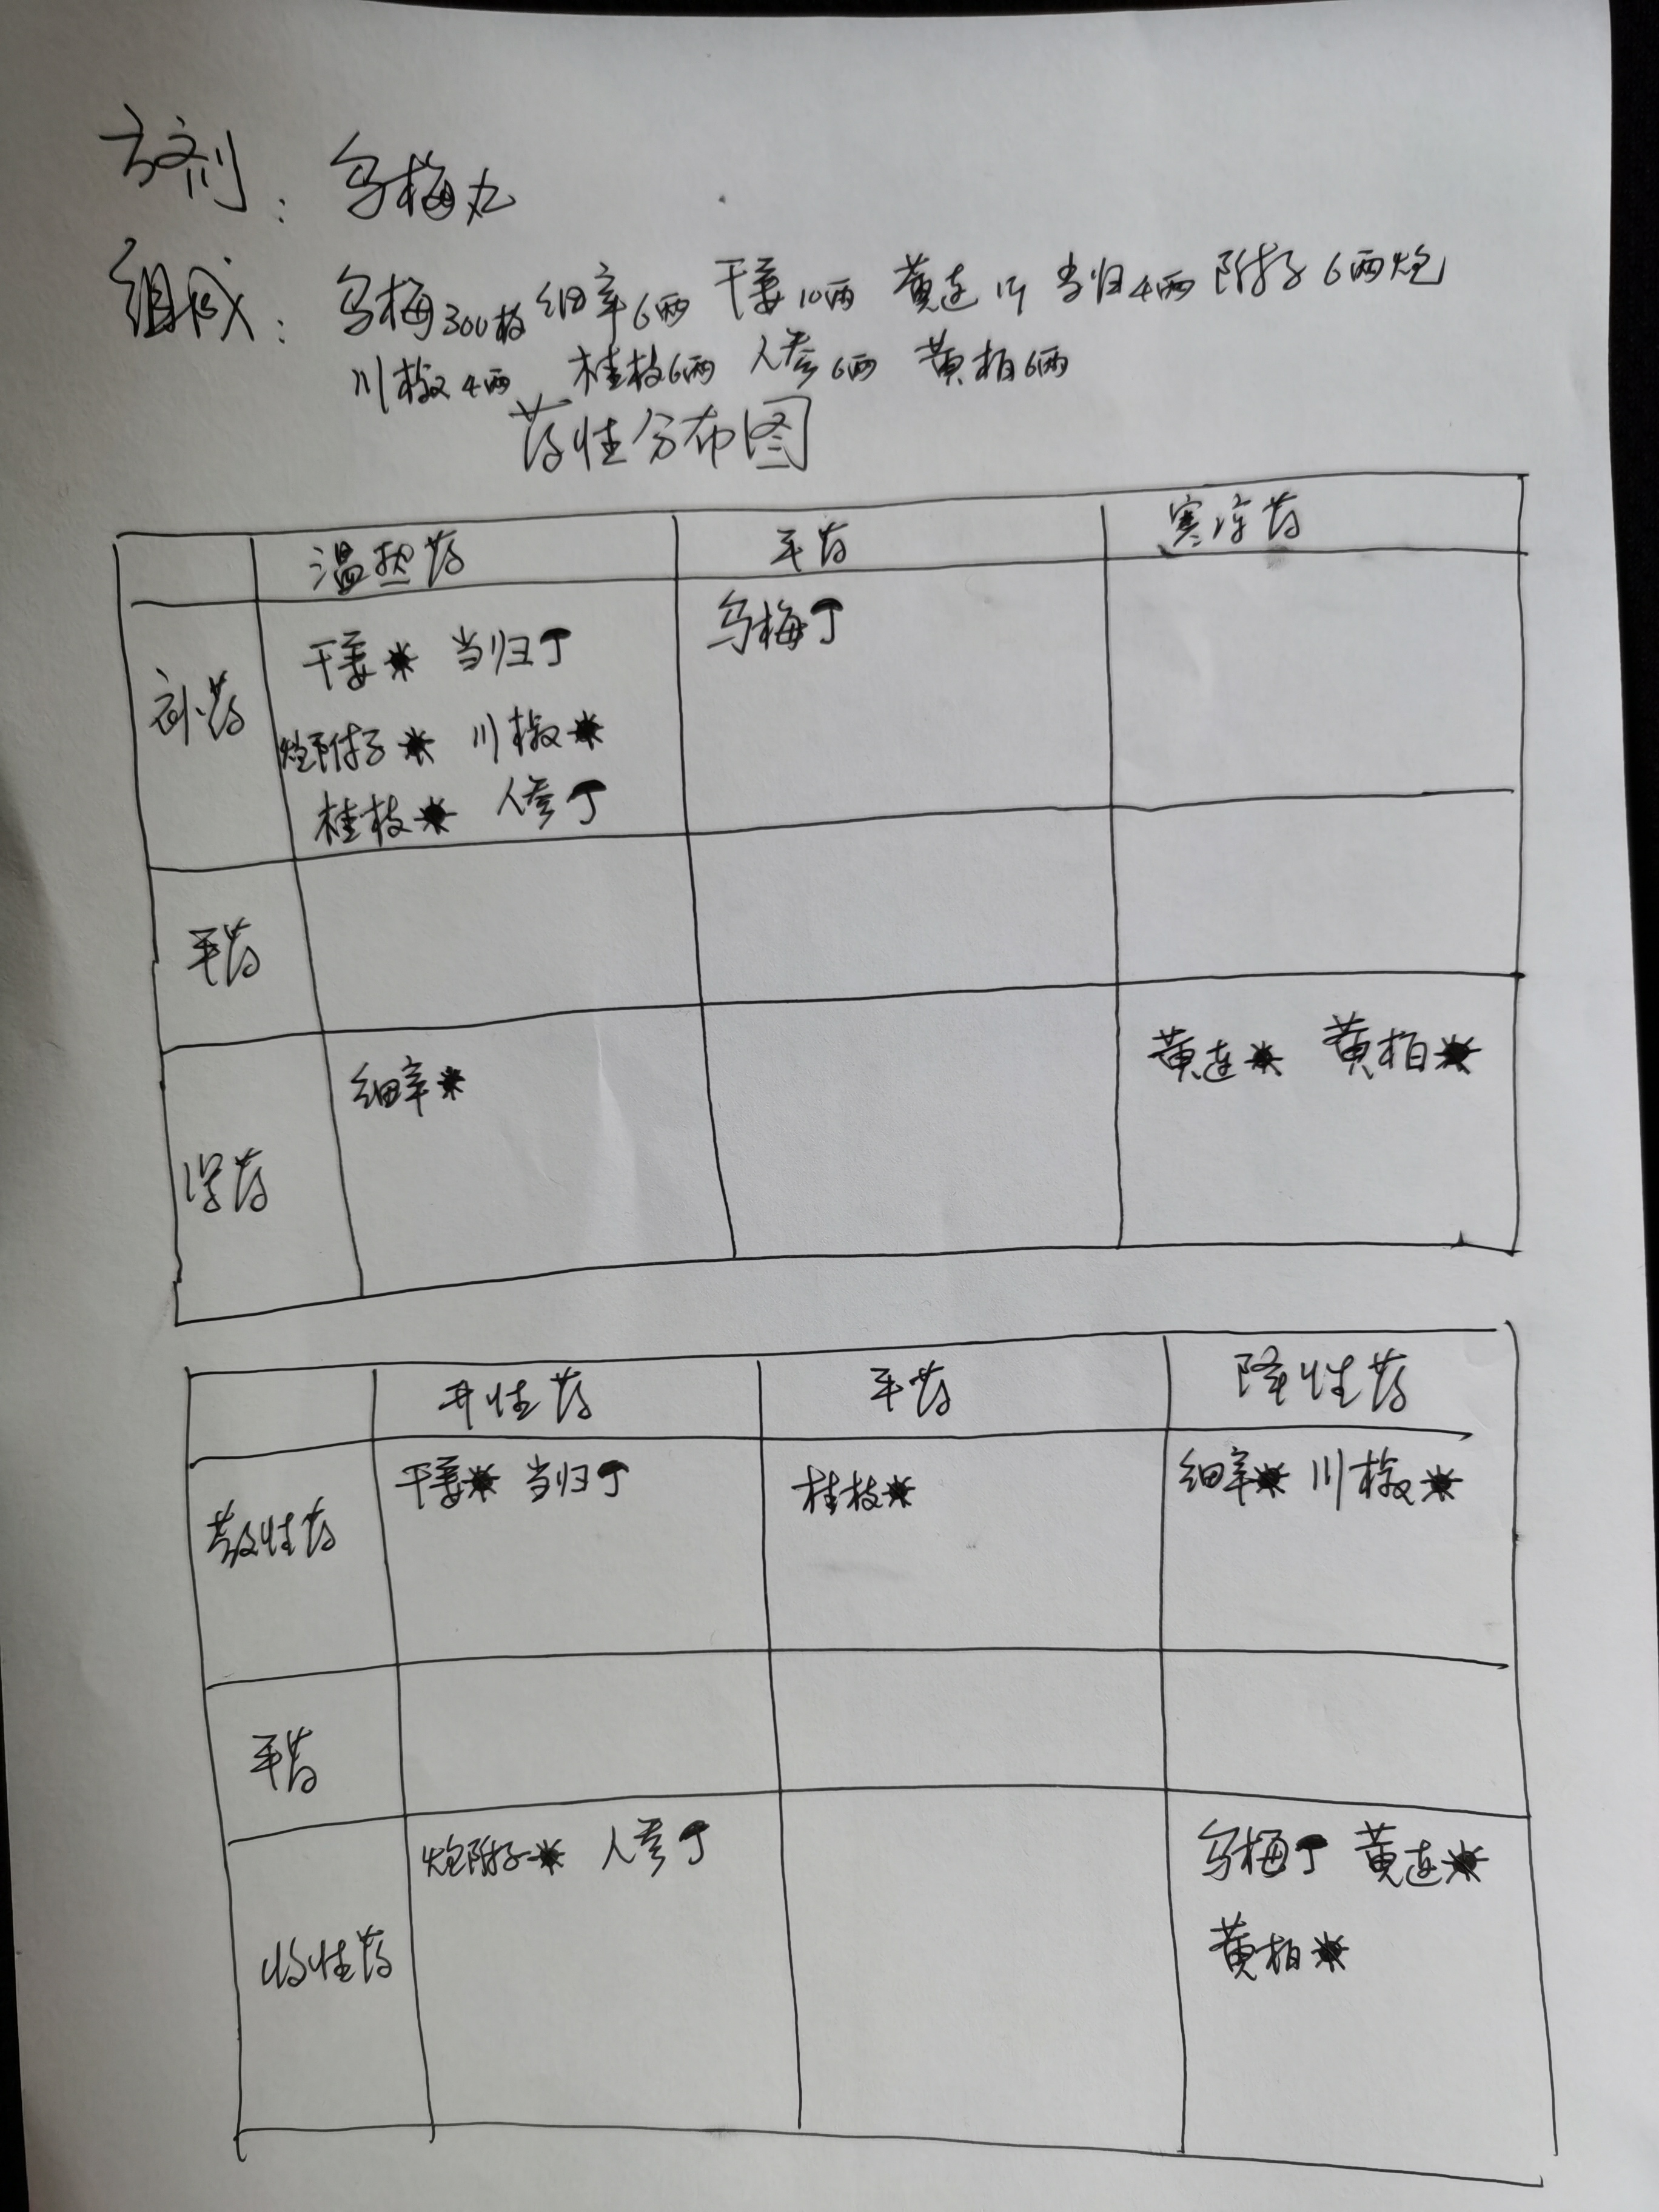 方剂：乌梅丸
组成：乌梅300枚 细辛6两 干姜10两 黄连1斤 当归4两 附子6两炮
川椒4两 桂枝6两 人参6两 黄柏6两
药性分布图
温热药 平药 寒凉药
补药 干姜 当归 乌梅
炮附子 川椒
桂枝 人参
平药
泻药 细辛 黄连 黄柏
升性药 平药 降性药
散性药 干姜 当归 桂枝 细辛 川椒
平药
收性药 炮附子 人参 乌梅 黄连
黄柏